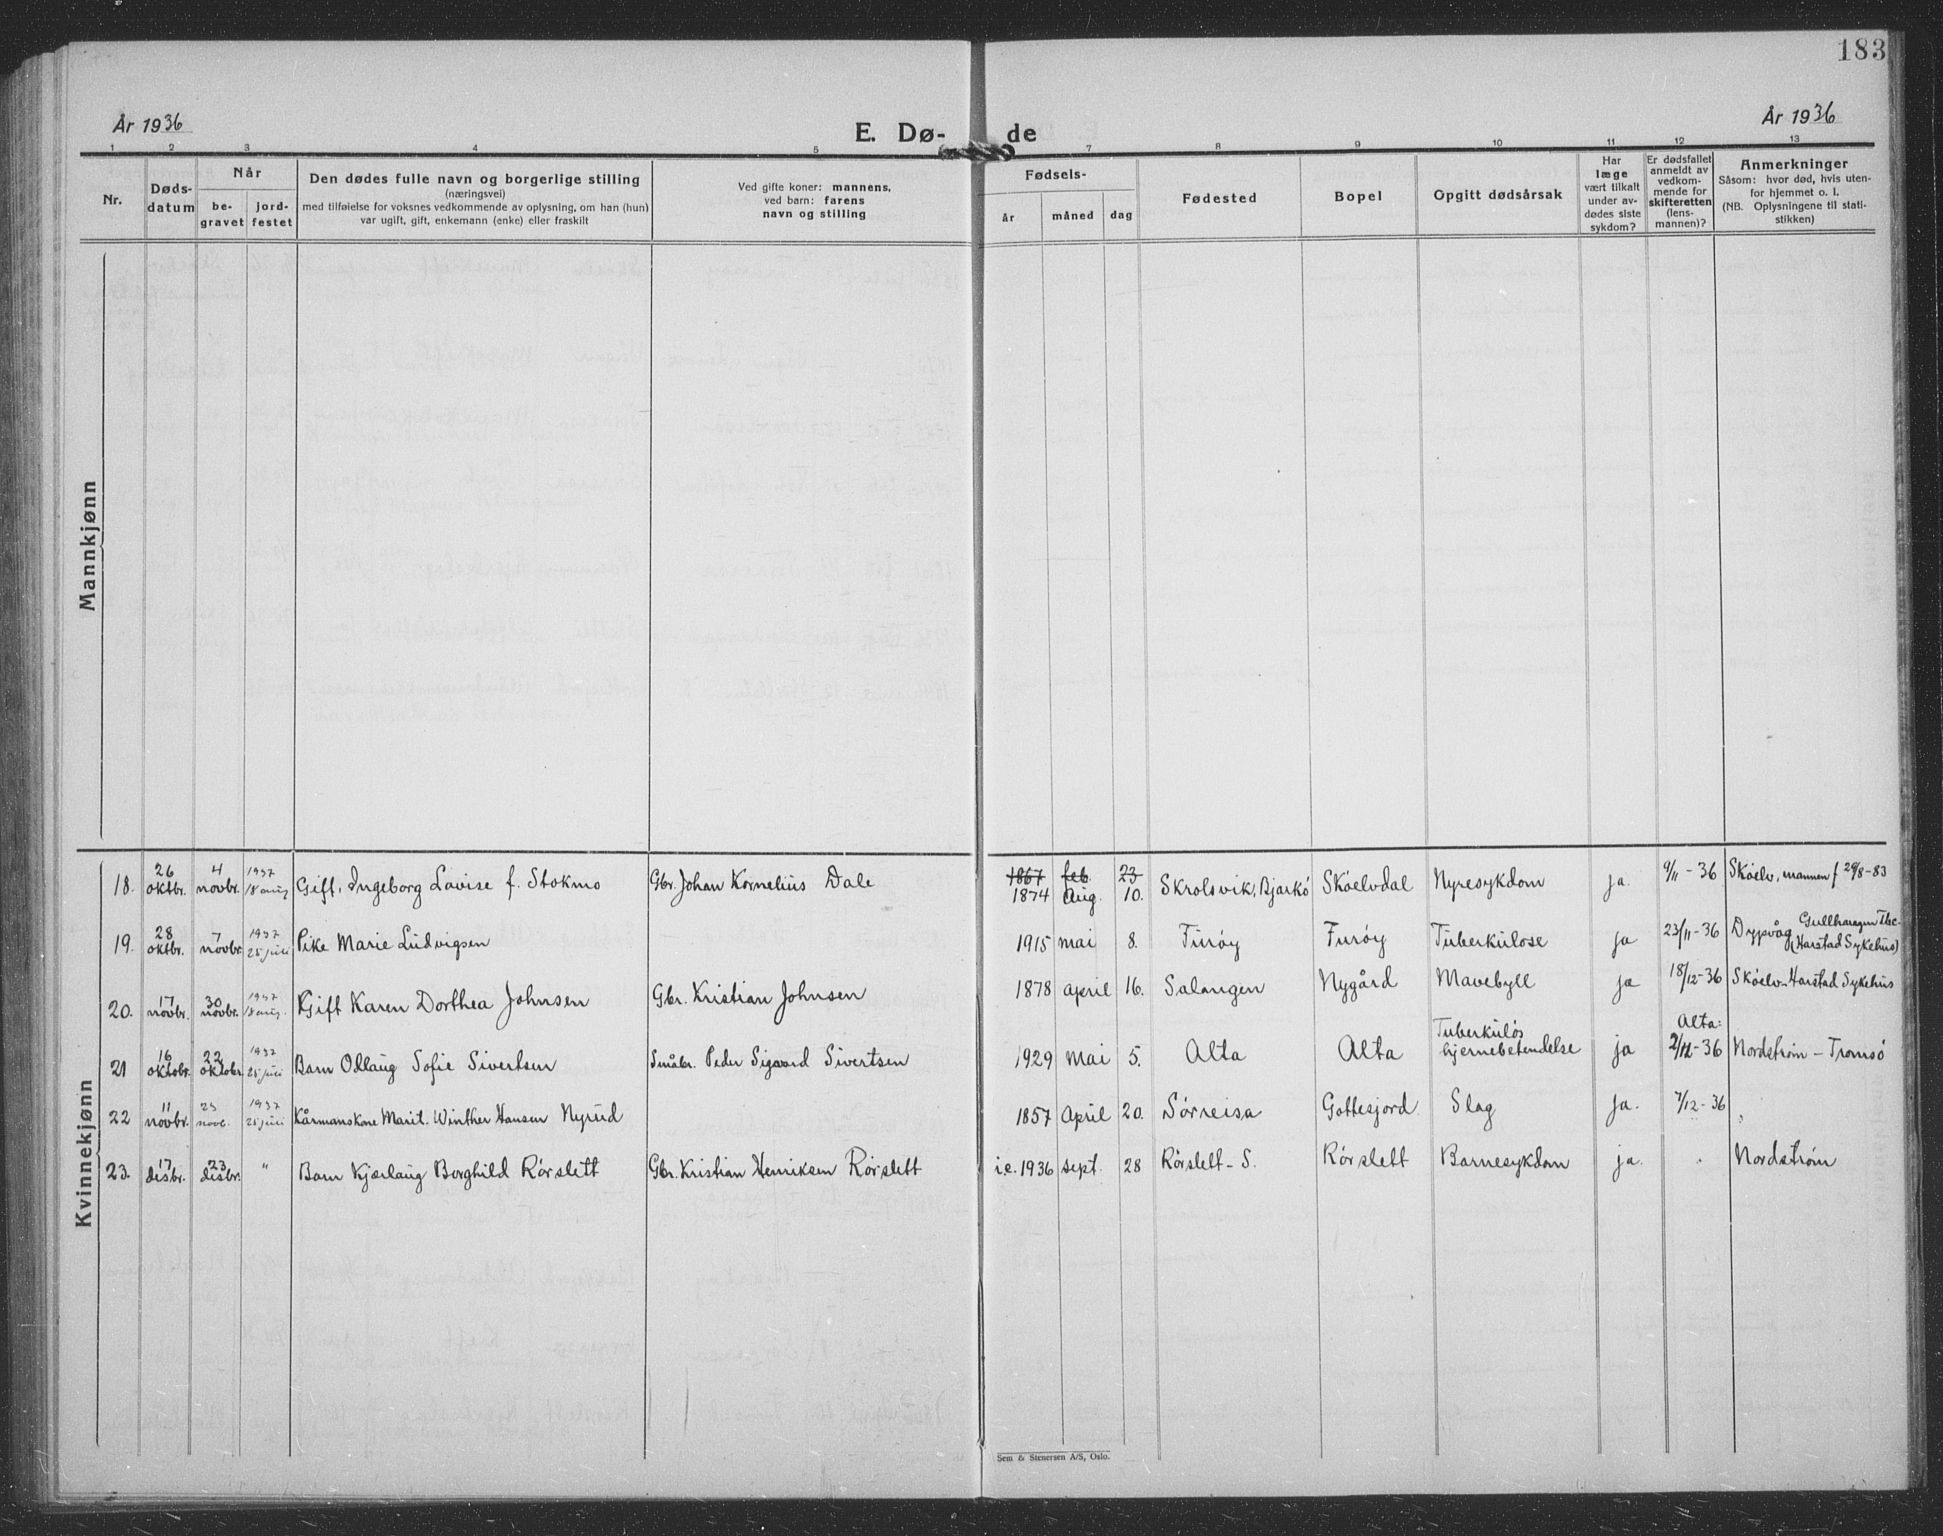 183
År 1936
E. Dø- de
År 1936
1 2 3 4 5 6 7 8 9 10 11 12 13
Nr.
Døds-
datum
Når
be-
gravet
jord-
festet
Den dødes fulle navn og borgerlige stilling
(næringsvei)
med tilføielse for voksnes vedkommende av oplysning, om han (hun)
var ugift, gift, enkemann (enke) eller fraskilt
Ved gifte koner: mannens,
ved barn: farens
navn og stilling
Fødsels-
år
måned
dag
Fødested
Bopel
Opgitt dødsårsak
Har
læge
vært tilkalt
under av-
dødes siste
sykdom?
Er dødsfallet
anmeldt av
vedkom-
mende for
skifteretten
(lens-
mannen)?
Anmerkninger
Såsom: hvor død, hvis uten-
for hjemmet o. l.
(NB. Oplysningene til stati-
stikken)
Mannkjønn
Kvinnekjønn
18. 26 oktbr. 4 novbr. 1937 18 aug Gift, Ingeborg Lovise f. Stokmo Gbr. Johan Kornelius Dale 1867 feb. 23 1874 Aug. 10. Skrolsvik, Bjarkö Skøelvdal Nyresykdom ja. 9/11-36 Skøelv, mannen f 29/8-83
19. 28 oktbr. 7 novbr. 1937 25 juli Pike Marie Ludvigsen 1915 mai 8. Furøy Furøy Tuberkulose ja 23/11-36 Dypvåg Gullhaugen Tbc- (Harstad Sykehus)
20. 17 novbr. 30 novbr. 1937 18 aug. Gift Karen Dorthea Johnsen Gbr. Kristian Johnsen 1878 april 16. Salangen Nygård Mavebyll ja 18/12-36 Skøelv- Harstad Sykehus
21 16 oktobr. 22 oktobr. 1937 25 juli Barn Ollaug Sofie Sivertsen Småbr. Peder Sigvard Sivertsen 1929 mai 5. Alta Alta Tuberkuløs hjernebetendelse ja Alta: 2/12-36 Nordstrøm - Tromsö
22 11 novbr. 23 novb. 1937 25 juli Kårmanskone Marit. Winther Hansen Nyrud 1857 April 20. Sørreisa Gottesjord Slag ja. 7/12-36
23. 17 desbr. 23 desbr. " Barn Kjærlaug Borghild Rørslett Gbr. Kristian Henriksen Rørslett i.e. 1936 sept. 28 Rørslett-S. Rørslett Barnesykdom ja. Nordstrøm
Sem & Stenersen A/S, Oslo.